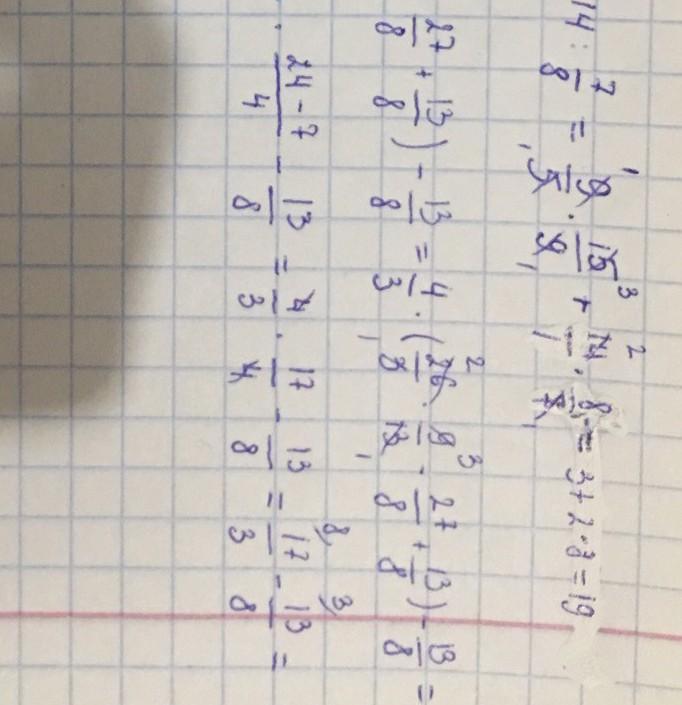 14 : 7/8 = 9/5 · 15/9 + 14/1 · 8/7 = 3 + 2·8 = 19
27/8 + 13/8) - 13/8 = 4/3 · (26/3 · 9/13 - 27/8 + 13/8) - 13/8 =
· 24-7/4 - 13/8 = 4/3 · 17/4 - 13/8 = 17/3 - 13/8 =